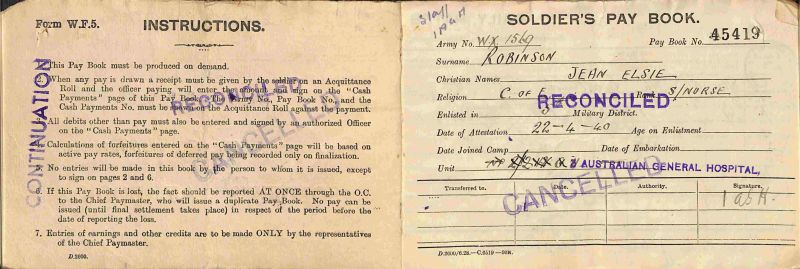 Form W.F.5.
INSTRUCTIONS.
CONTINUATION
1. This Pay Book must be produced on demand.
2. When any pay is drawn a receipt must be given by the soldier on an Acquittance
Roll and the officer paying will enter the amount and sign on the "Cash
Payments" page of this Pay Book. The Army No., Pay Book No., and the
Cash Payments No. must be entered on the Acquittance Roll against the payment.
RECONCILED
3. All debits other than pay must also be entered and signed by an authorized Officer
on the "Cash Payments" page.
CANCELLED
4. Calculations of forfeitures entered on the "Cash Payments" page will be based on
active pay rates, forfeitures of deferred pay being recorded only on finalization.
5. No entries will be made in this book by the person to whom it is issued, except
to sign on pages 2 and 6.
6. If this Pay Book is lost, the fact should be reported AT ONCE through the O.C.
to the Chief Paymaster, who will issue a duplicate Pay Book. No pay can be
issued (until final settlement takes place) in respect of the period before the
date of reporting the loss.
7. Entries of earnings and other credits are to be made ONLY by the representatives
of the Chief Paymaster.
D.2600.
Staff
SOLDIER'S PAY BOOK.
Army No. WX 1569 Pay Book No. 45419
Surname ROBINSON
Christian Names JEAN ELSIE
Religion C. of E Rank S/NURSE
RECONCILED
Enlisted in 5 Military District.
Date of Attestation 22-4-40 Age on Enlistment
Date Joined Camp Date of Embarkation
Unit AUSTRALIAN GENERAL HOSPITAL,
CANCELLED
Transferred to. Date. Authority. Signature.
D.2600/6.28.—C.2519—90M.